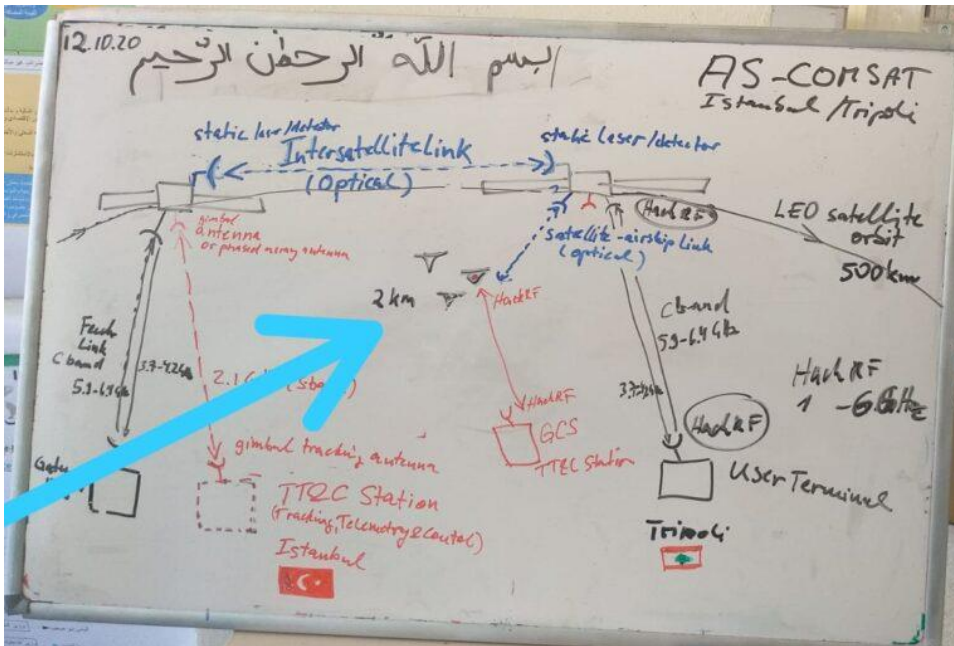 12.10.20
بسم الله الرحمن الرحيم
AS-COMSAT
Istanbul/Tripoli
static laser/detector
Intersatellite Link
(Optical)
static laser/detector
gimbal
antenna
or phased array antenna
HackRF
satellite-airship link
(optical)
LEO satellite
orbit
500km
2 km
HackRF
Link
C band
5.9-6.4 GHz
3.7-4.2 GHz
2.1
C band
5.9-6.4 GHz
3.7-4.2 GHz
HackRF
1 -6 GHz
HackRF
GCS
TT&C Station
HackRF
gimbal tracking antenna
TT&C Station
(Tracking, Telemetry & Control)
Istanbul
User Terminal
Tripoli